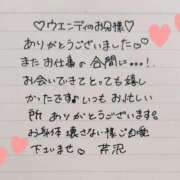 ♡ウエンディのお兄様♡
ありがとうございました♡
またお仕事の合間に...!
お会いできてとっても嬉し
かったです♪いつもお忙しい
所 ありがとうございます
お身体 壊さない様ご自愛
下さいませ♡ 芹沢